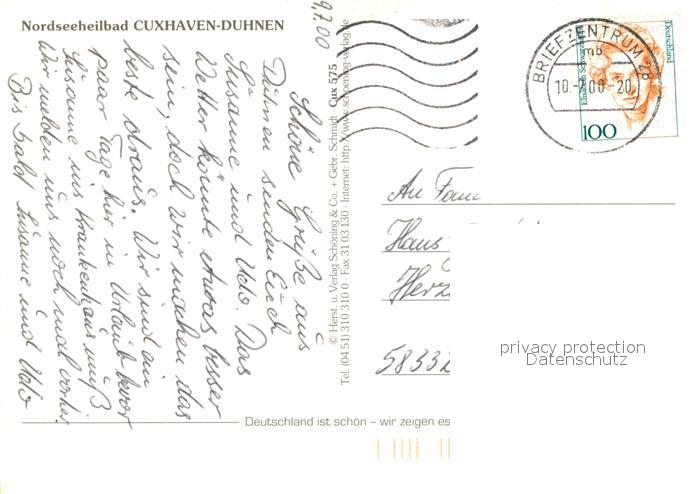 Nordseeheilbad CUXHAVEN-DUHNEN
9.7.00
Schöne Grüße aus
Duhnen senden Euch
Susanne und Udo. Das
Wetter könnte etwas besser
sein, doch wir machen das
beste draus. Wir sind ein
paar Tage hier in Urlaub bevor
Susanne ins Krankenhaus muß.
Wir melden uns noch mal vorher.
Bis bald Susanne und Udo
© Herst. u. Verlag Schöning & Co. + Gebr. Schmidt Cux 575
Tel. (04 51) 310 310 0 · Fax 31 03 130 · Internet: http://www.schoening-verlag.de
BRIEFZENTRUM 28
mb
10.-7.00-20
Deutschland
100
An Fam
Haus
Herz
58332
privacy protection
Datenschutz
Deutschland ist schön – wir zeigen es